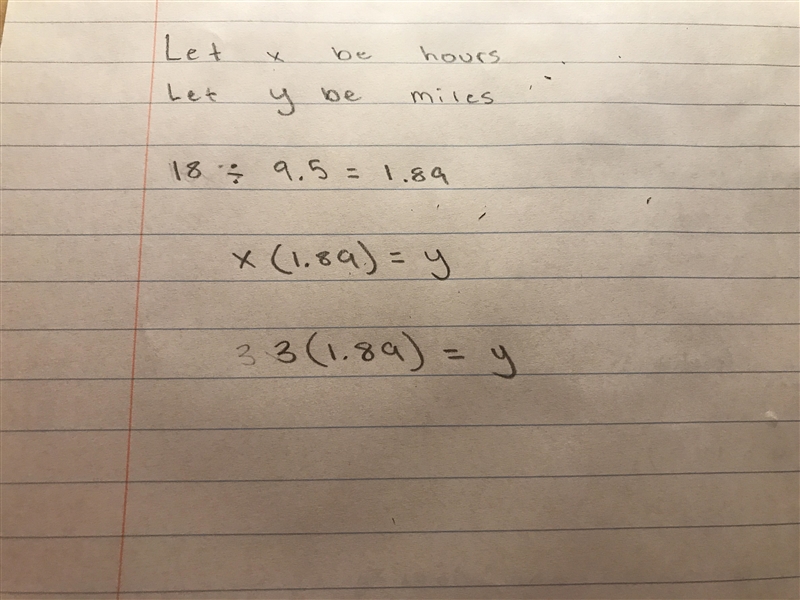 Let x be hours
Let y be miles
18 ÷ 9.5 = 1.89
x (1.89) = y
3 3 (1.89) = y